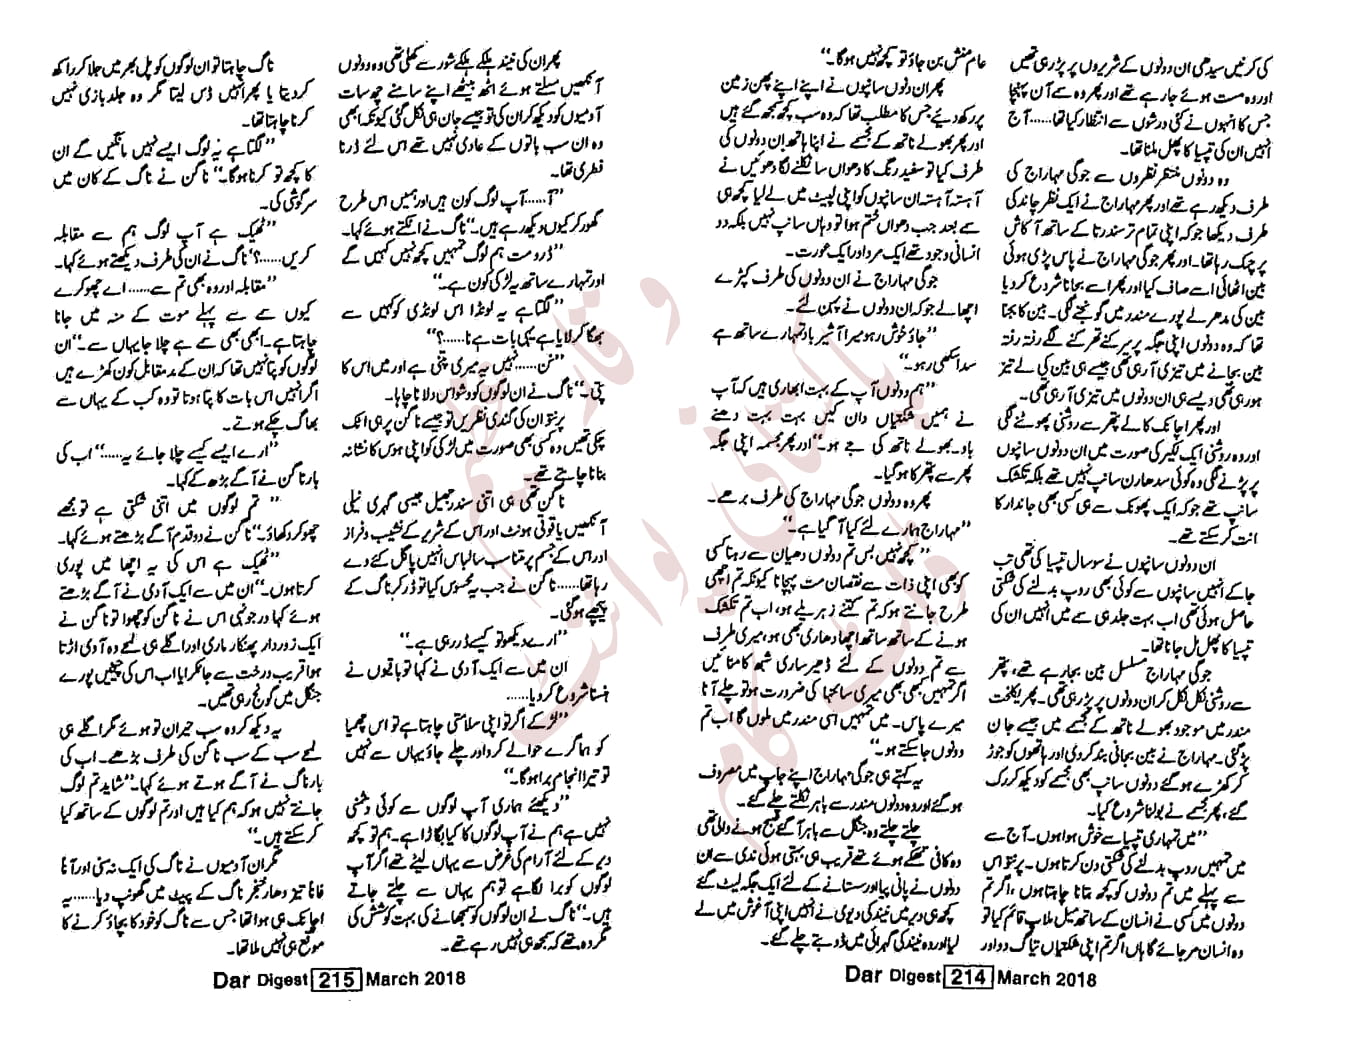 کی کرنیں سیدھی ان دونوں کے شریروں پر پڑ رہی تھیں
اور وہ مست ہوئے جا رہے تھے اور پھر وہ سے آن پہنچا
جس کا انہوں نے کئی ورشوں سے انتظار کیا تھا......آج
انہیں ان کی تپسیا کا پھل ملنا تھا۔
وہ دونوں منتظر نظروں سے جوگی مہاراج کی
طرف دیکھ رہے تھے اور پھر مہاراج نے ایک نظر چاند کی
طرف دیکھا جو کہ اپنی تمام تر سندرتا کے ساتھ آکاش
پر چمک رہا تھا۔ اور پھر جوگی مہاراج نے پاس پڑی ہوئی
بین اٹھائی اسے صاف کیا اور پھر اسے بجانا شروع کر دیا
بین کی مدھر لے پورے مندر میں گونجنے لگی۔ بین کا بجنا
تھا کہ وہ دونوں اپنی جگہ پر پیر کے تھرکنے لگے رفتہ رفتہ
بین بجانے میں تیزی آ رہی تھی جیسے ہی بین کی لے تیز
ہو رہی تھی ویسے ہی ان دونوں میں تیزی آ رہی تھی۔
اور پھر اچانک کالے پتھر سے روشنی پھوٹنے لگی
اور وہ روشنی ایک لکیر کی صورت میں ان دونوں سانپوں
پر پڑنے لگی وہ کوئی سدھارن سانپ نہیں تھے بلکہ تکشک
سانپ تھے جو کہ ایک پھونک سے ہی کسی بھی جاندار کا
انت کر سکتے تھے۔
ان دونوں سانپوں نے سو سال تپسیا کی تھی تب
جا کے انہیں سانپوں سے کوئی بھی روپ بدلنے کی شکتی
حاصل ہوئی تھی اب بہت جلد ہی سے میں انہیں ان کی
تپسیا کا پھل مل جانا تھا۔
جوگی مہاراج مسلسل بین بجا رہے تھے، پتھر
سے روشنی نکل نکل کر ان دونوں پر پڑ رہی تھی۔ پھر یکلخت
مندر میں موجود بھولے ناتھ کے مجسمے میں جیسے جان
پڑ گئی۔ مہاراج نے بین بجانی بند کر دی اور ہاتھوں کو جوڑ
کر کھڑے ہو گئے دونوں سانپ بھی مجسمے کو دیکھ کر رک
گئے، پھر مجسمے نے بولنا شروع کیا۔
”میں تمہاری تپسیا سے خوش ہوا ہوں۔ آج سے
میں تمہیں روپ بدلنے کی شکتی دن کرتا ہوں۔ پرنتو اس
سے پہلے میں تم دونوں کو کچھ بتانا چاہتا ہوں، اگر تم
دونوں میں کسی نے انسان کے ساتھ میل ملاپ قائم کیا تو
وہ انسان مر جائے گا ہاں اگر تم اپنی شکتیاں تیاگ دو اور
عام منش بن جاؤ تو کچھ نہیں ہوگا۔“
پھر ان دونوں سانپوں نے اپنے اپنے پھن زمین
پر رکھ دیئے جس کا مطلب تھا کہ وہ سب کچھ سمجھ گئے ہیں
اور پھر بھولے ناتھ کے مجسمے نے اپنا ہاتھ ان دونوں کی
طرف کیا تو سفید رنگ کا دھواں سا نکلنے لگا دھوئیں نے
آہستہ آہستہ ان سانپوں کو اپنی لپیٹ میں لے لیا کچھ ہی
سے بعد جب دھواں ختم ہوا تو وہاں سانپ نہیں بلکہ دو
انسانی وجود تھے ایک مرد اور ایک عورت۔
جوگی مہاراج نے ان دونوں کی طرف کپڑے
اچھالے جو کہ ان دونوں نے پہن لئے۔
”جاؤ خوش رہو میرا آشیر باد تمہارے ساتھ ہے
سدا سکھی رہو۔“
”ہم دونوں آپ کے بہت ابھاری ہیں کہ آپ
نے ہمیں شکتیاں دان کیں بہت بہت دھنے
باد۔ بھولے ناتھ کی جے ہو۔“ اور پھر مجسمہ اپنی جگہ
پھر سے پتھر کا ہو گیا۔
پھر وہ دونوں جوگی مہاراج کی طرف بڑھے۔
”مہاراج ہمارے لئے کیا آ گیا ہے۔“
”کچھ نہیں بس تم دونوں دھیان سے رہنا کسی
کو بھی اپنی ذات سے نقصان مت پہنچانا کیونکہ تم اچھی
طرح جانتے ہو کہ تم کتنے زہریلے ہو، اب تم تکشک
ہونے کے ساتھ ساتھ اچھا دھاری بھی ہو، میری طرف
سے تم دونوں کے لئے ڈھیر ساری شبھ کامنائیں
اگر تمہیں کبھی بھی میری سائتھا کی ضرورت ہو تو چلے آنا
میرے پاس۔ میں تمہیں اسی مندر میں ملوں گا اب تم
دونوں جا سکتے ہو۔“
یہ کہتے ہی جوگی مہاراج اپنے جاپ میں مصروف
ہو گئے اور وہ دونوں مندر سے باہر نکلتے چلے گئے۔
چلتے چلتے وہ جنگل سے باہر آ گئے صبح ہونے والی تھی
وہ کافی تھکے ہوئے تھے قریب ہی بہتی ہوئی ندی سے ان
دونوں نے پانی پیا اور ستانے کے لئے ایک جگہ لیٹ گئے
کچھ ہی دیر میں نیند کی دیوی نے انہیں اپنی آغوش میں لے
لیا اور وہ نیند کی گہرائی میں ڈوبتے چلے گئے۔
Dar Digest 214 March 2018
پھر ان کی نیند ہلکے ہلکے شور سے کھلی تھی وہ دونوں
آنکھیں مسلتے ہوئے اٹھ بیٹھے اپنے سامنے چھ سات
آدمیوں کو دیکھ کر ان کی تو جیسے جان ہی نکل گئی کیونکہ ابھی
وہ ان سب باتوں کے عادی نہیں تھے اس لئے ڈرنا
فطری تھا۔
”آ......آپ لوگ کون ہیں اور ہمیں اس طرح
گھور کر کیوں دیکھ رہے ہیں۔“ ناگ نے اٹکتے ہوئے کہا۔
”ڈرو مت ہم لوگ تمہیں کچھ نہیں کہیں گے
اور تمہارے ساتھ یہ لڑکی کون ہے۔“
”لگتا ہے یہ لونڈا اس لونڈی کو کہیں سے
بھگا کر لایا ہے یہی بات ہے نا......؟“
”نن......نہیں یہ میری پتنی ہے اور میں اس کا
پتی۔“ ناگ نے ان لوگوں کو وشواس دلانا چاہا۔
پرنتو ان کی گندی نظریں تو جیسے ناگن پر ہی اٹک
چکی تھیں وہ کسی بھی صورت میں لڑکی کو اپنی ہوس کا نشانہ
بنانا چاہتے تھے۔
ناگن تھی ہی اتنی سندر جھیل جیسی گہری نیلی
آنکھیں یاقوتی ہونٹ اور اس کے شریر کے نشیب و فراز
اور اس کے جسم پر مناسب سا لباس انہیں پاگل کئے دے
رہا تھا......ناگن نے جب یہ محسوس کیا تو ڈر کر ناگ کے
پیچھے ہو گئی۔
”ارے دیکھو تو کیسے ڈر رہی ہے۔“
ان میں سے ایک آدمی نے کہا تو باقیوں نے
ہنسنا شروع کر دیا......
”لڑکے اگر تو اپنی سلامتی چاہتا ہے تو اس چھمیا
کو ہمارے حوالے کر دو اور چلے جاؤ یہاں سے نہیں
تو تیرا انجام برا ہوگا۔“
”دیکھئے ہماری آپ لوگوں سے کوئی دشمنی
نہیں ہے ہم نے آپ لوگوں کا کیا بگاڑا ہے۔ ہم تو کچھ
دیر کے لئے آرام کی غرض سے یہاں لیٹے تھے اگر آپ
لوگوں کو برا لگا ہے تو ہم یہاں سے چلے جاتے
ہیں۔“ ناگ نے ان لوگوں کو سمجھانے کی بہت کوشش کی
مگر وہ تھے کہ سمجھ ہی نہیں رہے تھے۔
ناگ چاہتا تو ان لوگوں کو پل بھر میں جلا کر راکھ
کر دیتا یا پھر انہیں ڈس لیتا مگر وہ جلد بازی نہیں
کرنا چاہتا تھا۔
”لگتا ہے یہ لوگ ایسے نہیں مانیں گے ان
کا کچھ تو کرنا ہوگا۔“ ناگن نے ناگ کے کان میں
سرگوشی کی۔
”ٹھیک ہے آپ لوگ ہم سے مقابلہ
کریں......؟“ ناگ نے ان کی طرف دیکھتے ہوئے کہا۔
”مقابلہ اور وہ بھی تم سے......اے چھوکرے
کیوں سمے سے پہلے موت کے منہ میں جانا
چاہتا ہے۔ ابھی بھی سمے ہے چلا جا یہاں سے۔“ ان
لوگوں کو پتا نہیں تھا کہ ان کے مد مقابل کون کھڑے ہیں
اگر انہیں اس بات کا پتا ہوتا تو وہ کب کے یہاں سے
بھاگ چکے ہوتے۔
”ارے ایسے کیسے چلا جائے یہ......“ اب کی
بار ناگن نے آگے بڑھ کے کہا۔
”تم لوگوں میں اتنی شکتی ہے تو مجھے
چھو کر دکھاؤ۔“ ناگن نے دو قدم آگے بڑھتے ہوئے کہا۔
”ٹھیک ہے اس کی یہ اچھا میں پوری
کرتا ہوں۔“ ان میں سے ایک آدمی نے آگے بڑھتے
ہوئے کہا اور جونہی اس نے ناگن کو چھوا تو ناگن نے
ایک زوردار پھنکار ماری اور اگلے ہی لمحے وہ آدمی اڑتا
ہوا قریب درخت سے جا ٹکرایا اب اس کی چیخیں پورے
جنگل میں گونج رہی تھیں۔
یہ دیکھ کر وہ سب حیران تو ہوئے مگر اگلے ہی
لمحے سب کے سب ناگن کی طرف بڑھے۔ اب کی
بار ناگ نے آگے ہوتے ہوئے کہا۔ ”شاید تم لوگ
جانتے نہیں ہو کہ ہم کیا ہیں اور تم لوگوں کے ساتھ کیا
کر سکتے ہیں۔“
مگر ان آدمیوں نے ناگ کی ایک نہ سنی اور آناً
فاناً تیز دھار خنجر ناگ کے پیٹ میں گھونپ دیا......یہ
اچانک ہی ہوا تھا جس سے ناگ کو خود کا بچاؤ کرنے کا
موقع ہی نہیں ملا تھا۔
Dar Digest 215 March 2018